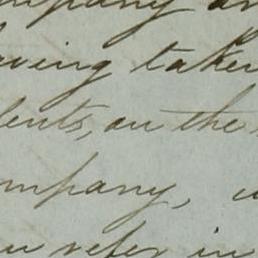 mpany an
aving taken
dents, on the
ompany, u
ou refer in